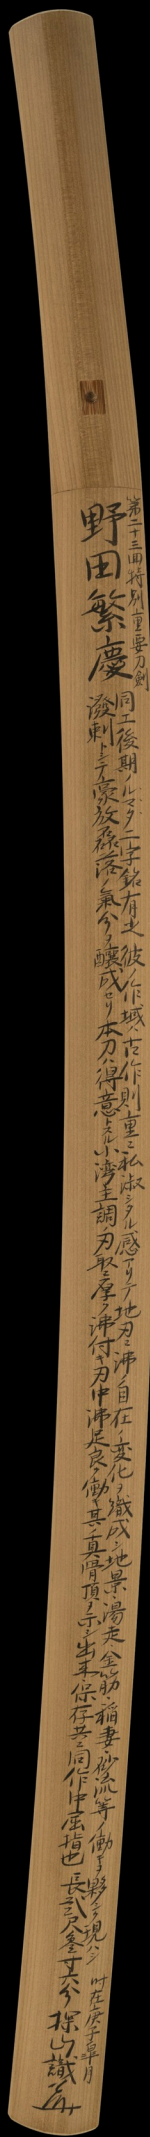 第二十三回特別重要刀剣
野田繁慶
同工後期ノルマタ二字銘有之彼ノ作域ハ古作則重ニ私淑シタル感アリテ地刃ニ沸ノ自在ノ変化ヲ織成シ地景湯走金筋稲妻砂流等ノ働キヲ夥シク現ハシ
潑剌トシテ豪放磊落ノ氣分ヲ醸成セリ本刀ハ得意トスル小湾主調ノ刃取ニ厚ク沸付キ刃中沸足良ク働キ其ノ真骨頂ヲ示シ出来保存共ニ同作中屈指也
時在庚子皐月
長貮尺参寸六分
探山識